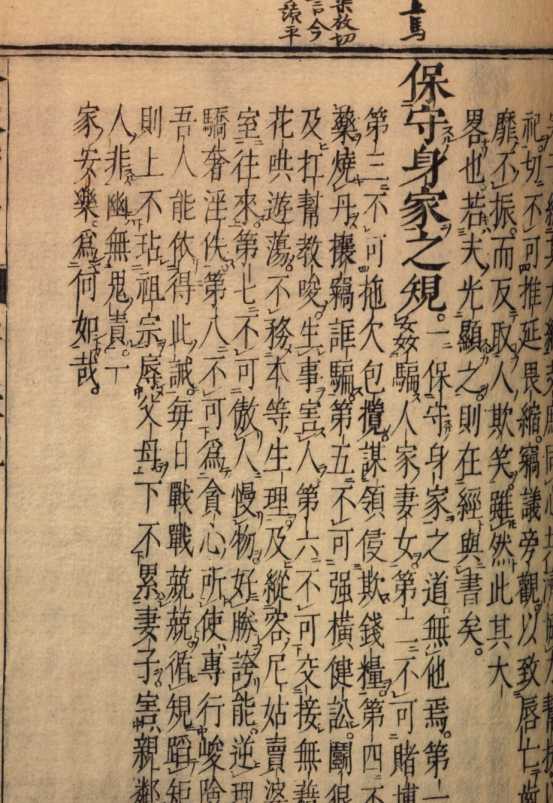 上馬
祀切不可推延畏縮竊議旁觀以致唇亡齒
靡不振而反取人欺笑雖然此其大
畧也若夫光顯之則在經與書矣
保守身家之規
一保守身家之道無他焉第一
姦騙人家妻女第二不可賭博
第三不可拖欠包攬謀領侵欺錢糧第四不
藥燒丹攘竊誆騙第五不可强橫健訟鬬狠
及扛幫教唆生事害人第六不可交接無藉
花哄遊蕩不務本等生理及縱容尼姑賣婆
室往來第七不可傲人慢物好勝誇能逆理
驕奢淫佚第八不可爲貪心所使專行峻險
吾人能依得此誡每日戰戰兢兢循規蹈矩
則上不玷祖宗辱父母下不累妻子害親鄰
人非幽無鬼責
家安樂爲何如哉